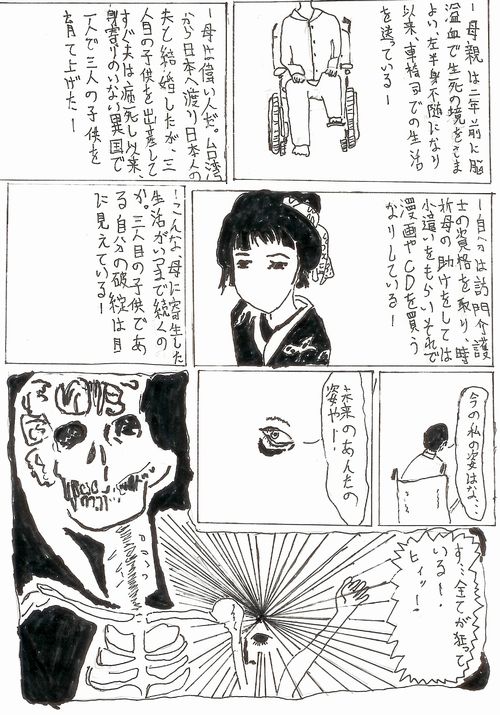 ー母親は二年前に脳
溢血で生死の境をさま
よい、左半身不随になり
以来、車椅子での生活
を送っているー
ー母は偉い人だ。台湾
から日本へ渡り日本人の
夫と結婚したが、三
人目の子供を出産して
すぐ夫は病死し以来、
身寄りのいない異国で
一人で三人の子供を
育て上げた！ー
ー自分は訪問介護
士の資格を取り、時
折母の助けをしては
小遣いをもらいそれで
漫画やCDを買う
なりしているー
ーこんな母に寄生した
生活がいつまで続くの
か。三人目の子供であ
る自分の破綻は目
に見えているー
今の私の姿はな、
未来のあんたの
姿や！
す、全てが狂って
いる！
ヒィッー！